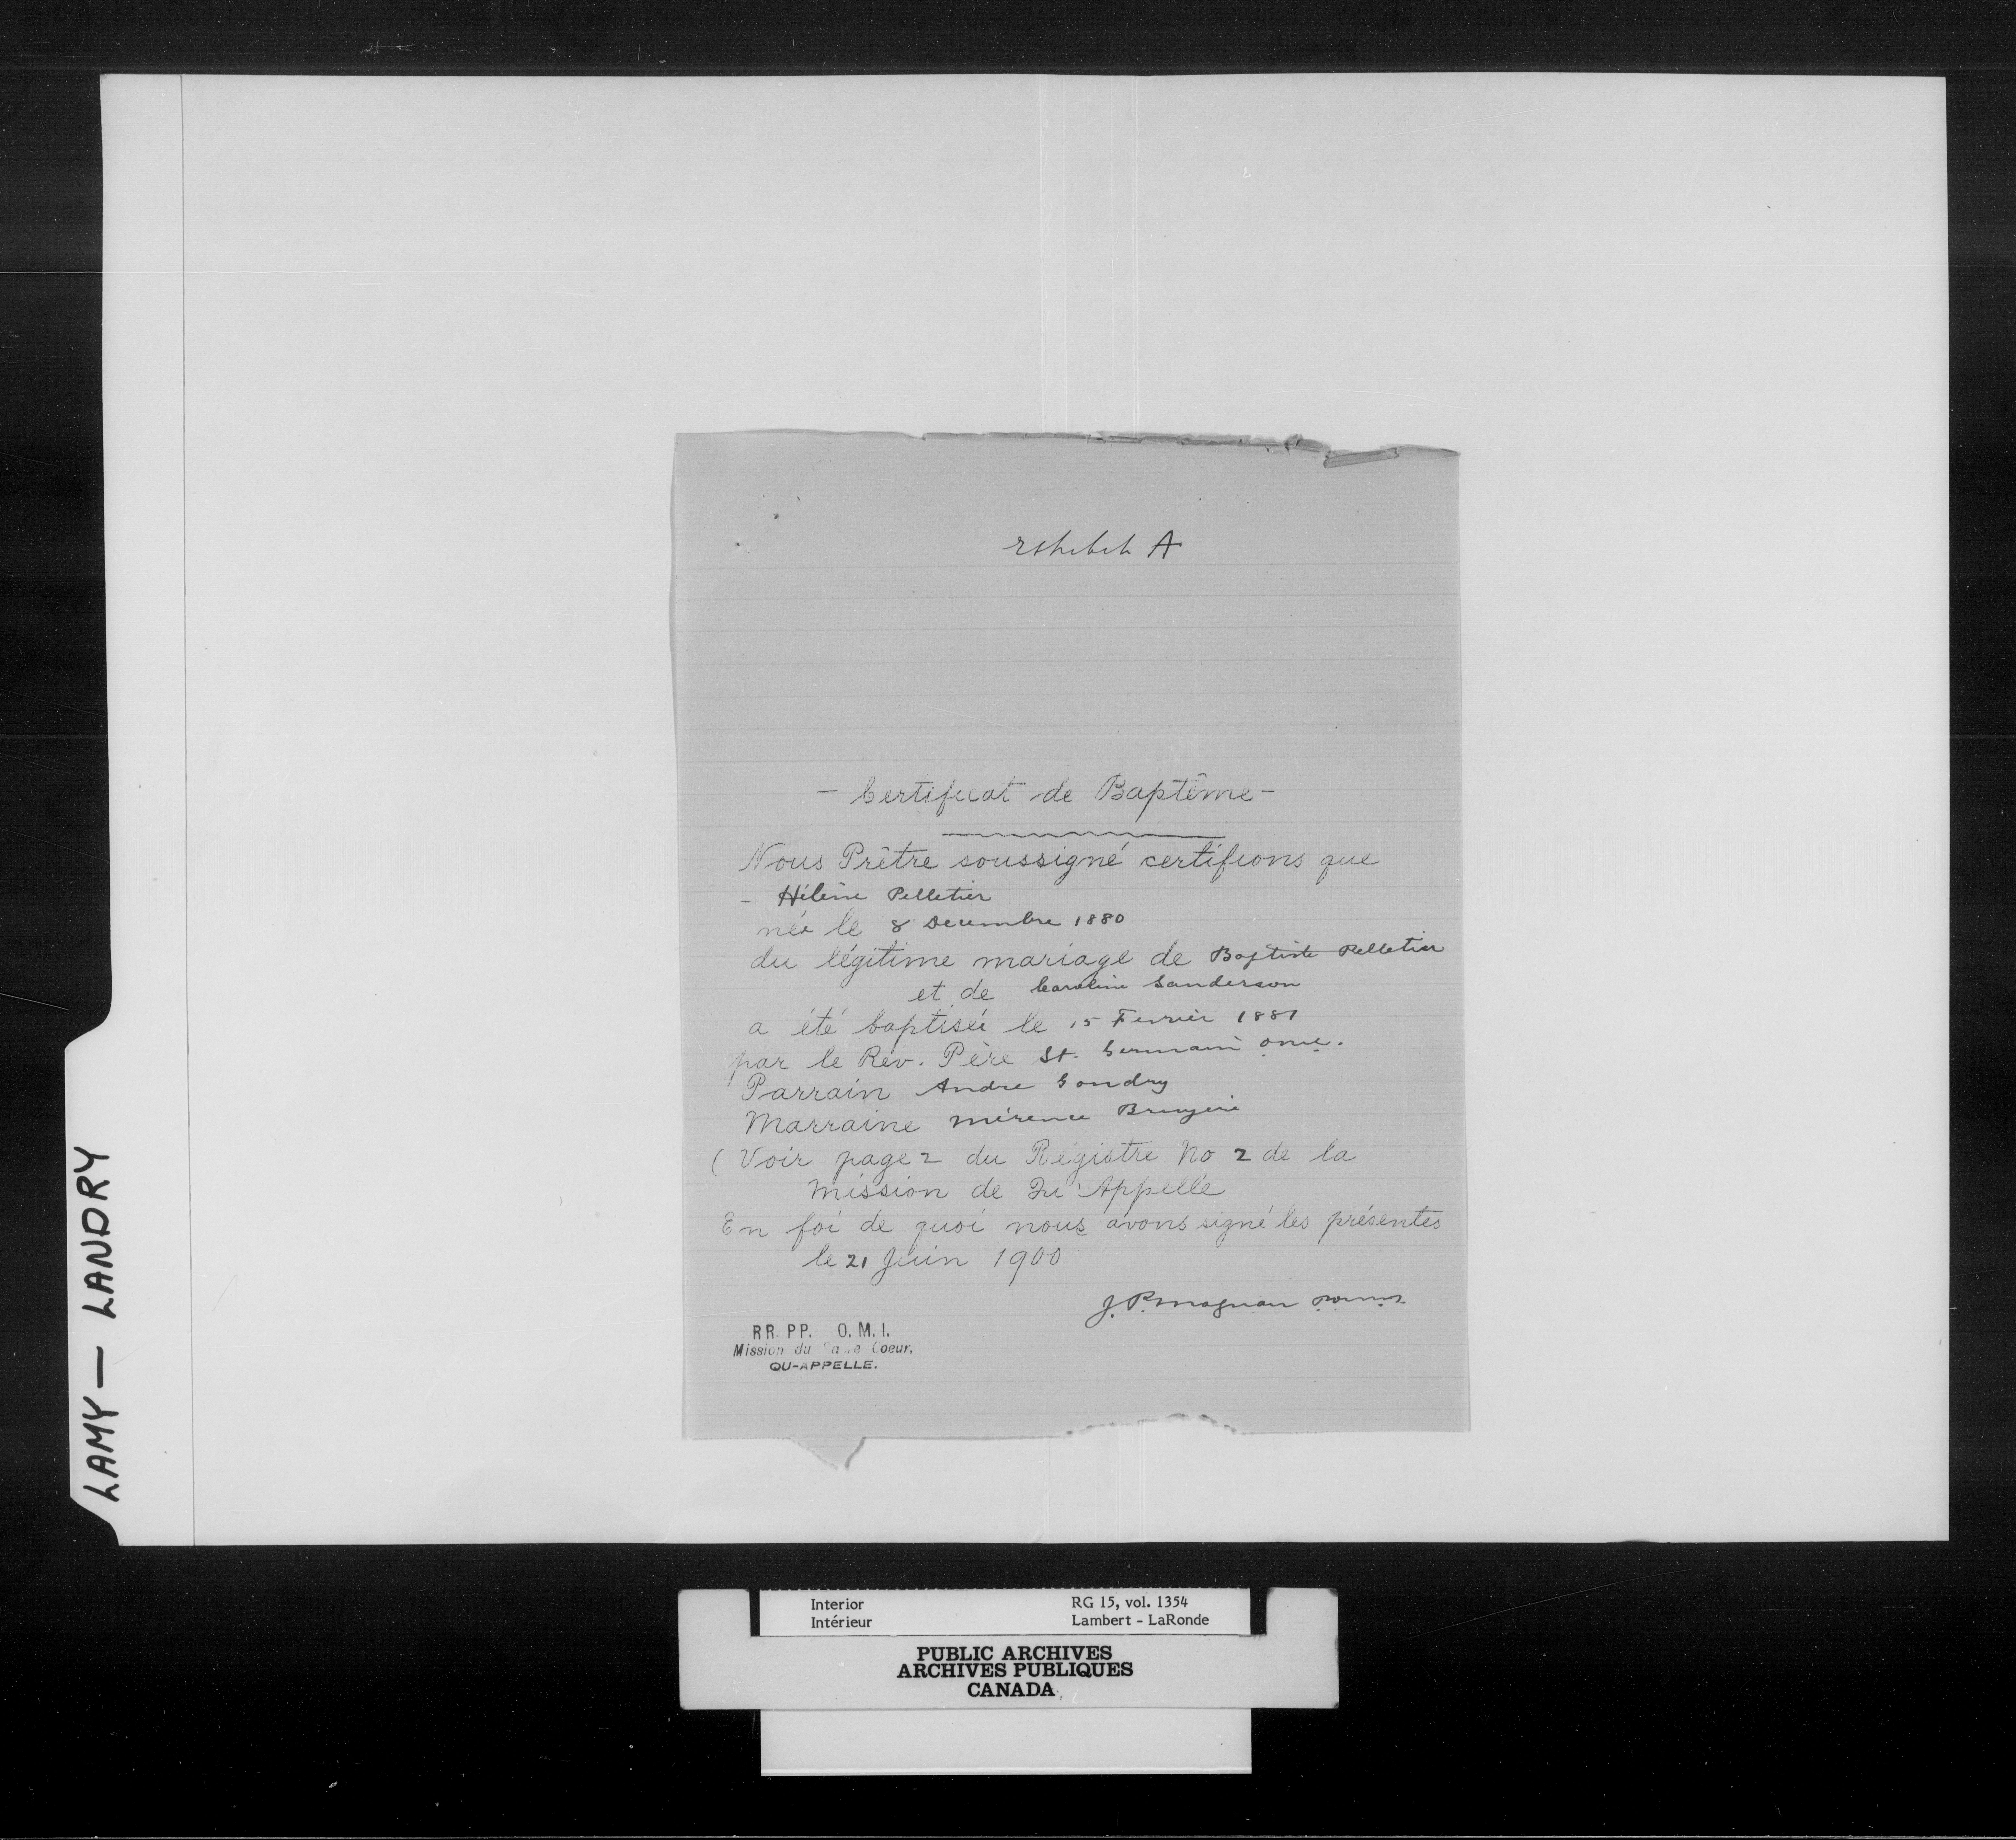 Exhibit A
- Certificat de Baptême -
Nous Prêtre soussigné certifions que
- Hélène Pelletier
née le 8 Decembre 1880
du légitime mariage de Baptiste Pelletier
et de Caroline Sanderson
a été baptisée le 15 Fevrier 1881
par le Rév. Père St. Germain o.m.i.
Parrain Andre Gondry
Marraine Bruyère
( Voir page 2 du Régistre No 2 de la
Mission de Qu'Appelle
En foi de quoi nous avons signé les présentes
le 21 Juin 1900
J. P. Magnan
RR. PP. O. M. I.
Mission du Coeur,
QU-APPELLE.
LAMY — LANDRY
Interior RG 15, vol. 1354
Intérieur Lambert - LaRonde
PUBLIC ARCHIVES
ARCHIVES PUBLIQUES
CANADA